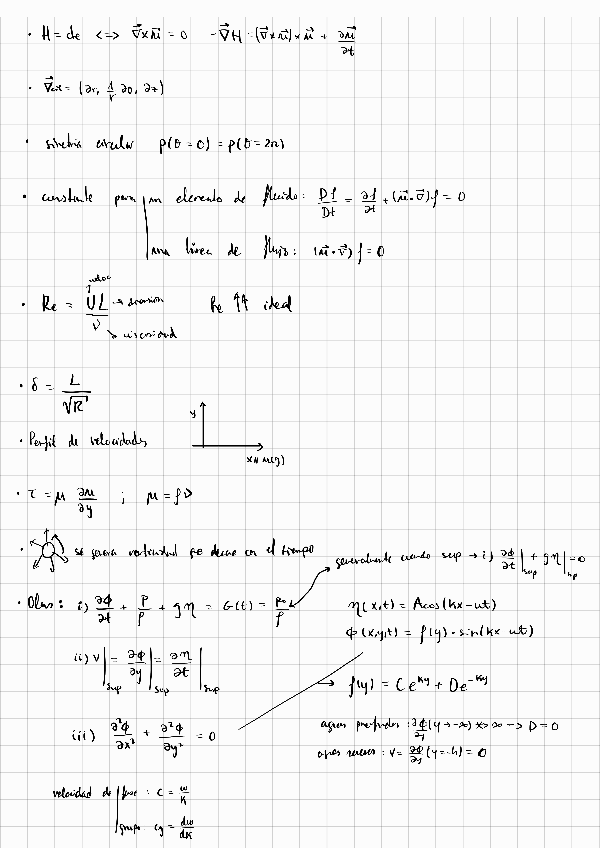 · H = cte <=> ∇⃗×u⃗ = 0   -∇⃗H = (∇⃗×u⃗)×u⃗ + ∂u⃗/∂t
· ∇⃗cil = (∂r, 1/r ∂θ, ∂z)
· simetria circular p(θ=0) = p(θ=2π)
· constante para | un elemento de fluido: Df/Dt = ∂f/∂t + (u⃗·∇⃗)f = 0
una linea de flujo: (u⃗·∇⃗) f = 0
· Re = UL/ν   Re ↑↑ ideal
→ viscosidad
· δ = L/√R
· Perfil de velocidades
y
x // u(y)
· τ = μ ∂u/∂y ; μ = ρν
· se genera vorticidad que decae con el tiempo
generalmente cuando sup → i) ∂ϕ/∂t|sup + gη|sup = 0
· Olas: i) ∂ϕ/∂t + p/ρ + gη = G(t) = p₀/ρ
η(x,t) = A cos(kx-ωt)
ϕ(x,y,t) = f(y)·sin(kx-ωt)
ii) v|sup = ∂ϕ/∂y|sup = ∂η/∂t|sup
→ f(y) = Ce^ky + De^-ky
iii) ∂²ϕ/∂x² + ∂²ϕ/∂y² = 0
aguas profundas: ∂ϕ/∂y (y→-∞) → D=0
v = ∂ϕ/∂y (y=-h) = 0
velocidad de | fase: c = ω/k
grupo: cg = dω/dk